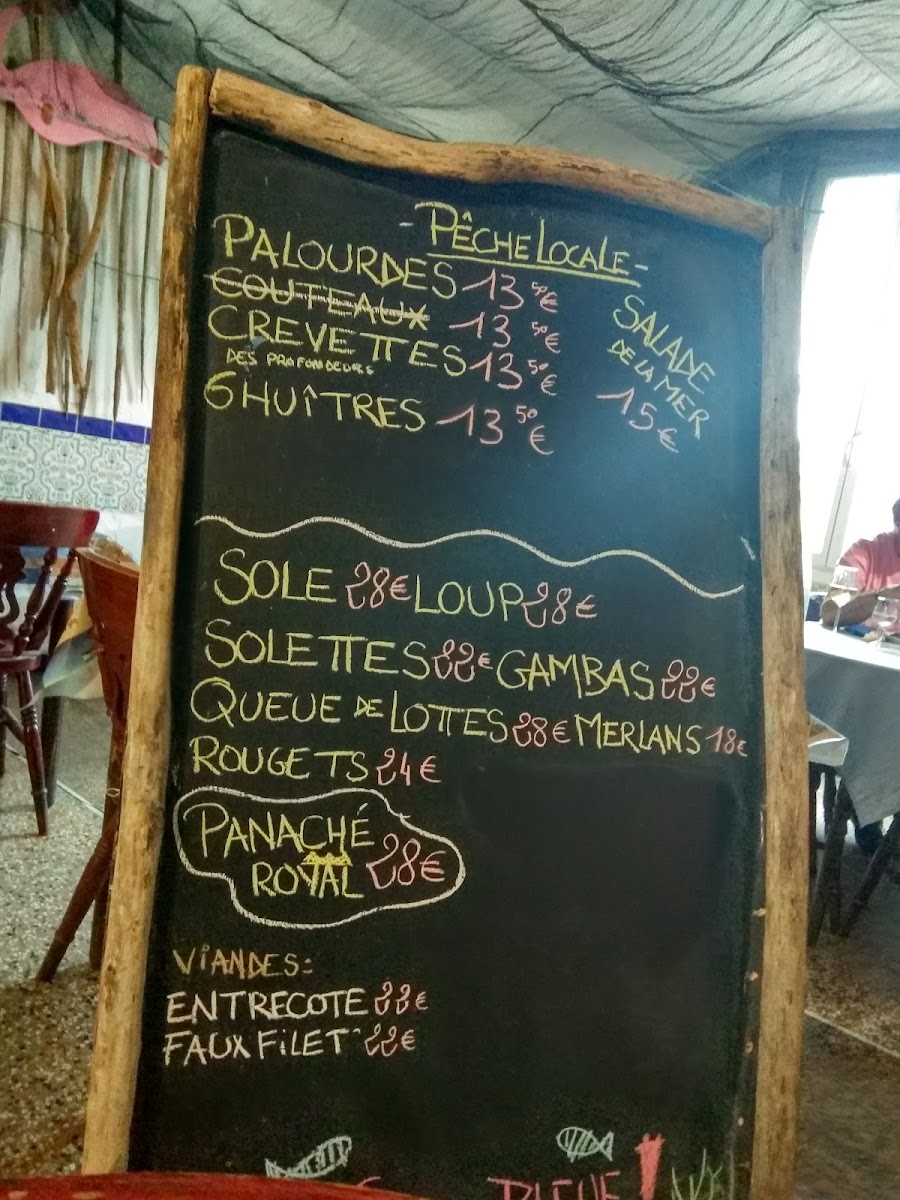 - PÊCHE LOCALE -
PALOURDES 13 50€
COUTEAUX 13 50€
CREVETTES 13 50€
DES PROFONDEURS
6 HUÎTRES 13 50€
SALADE
DE LA MER
15€
SOLE 28€ LOUP 28€
SOLETTES 22€ GAMBAS 22€
QUEUE DE LOTTES 28€ MERLANS 18€
ROUGETS 24€
PANACHÉ
ROYAL 28€
VIANDES:
ENTRECOTE 22€
FAUX FILET 22€